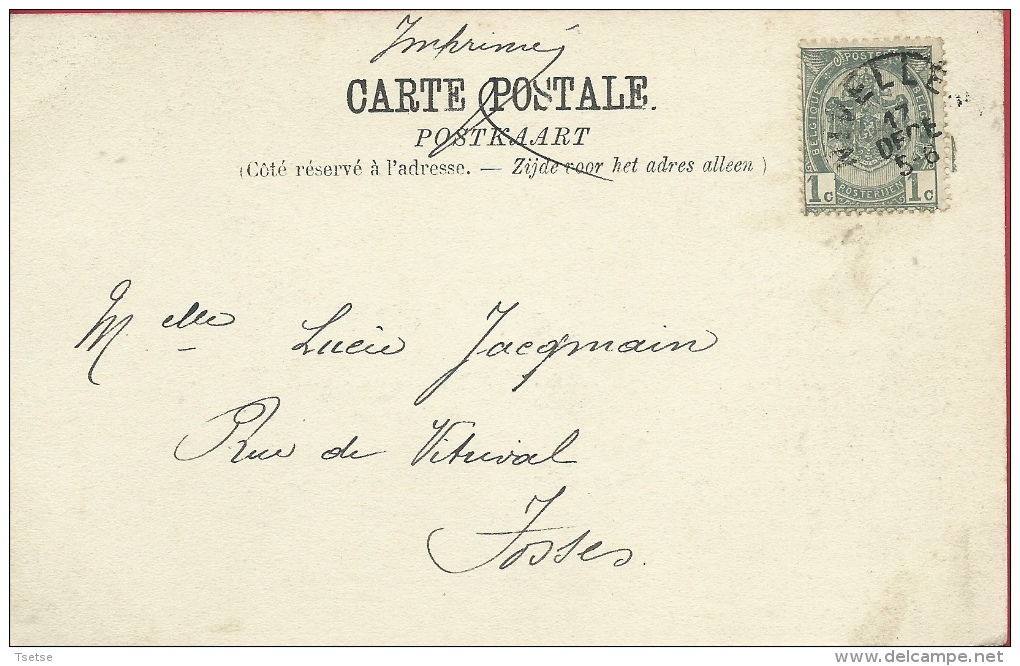 Imprimés
CARTE POSTALE.
POSTKAART
(Côté réservé à l'adresse. — Zijde voor het adres alleen)
POSTERIJEN
BELGIQUE
BELGIË
NIVELLE
17
DECE
5-6
1c POSTERIJEN 1c
Melle Lucie Jacqmain
Rue de Vitrival
Fosses
Tsetse
delcampe.net